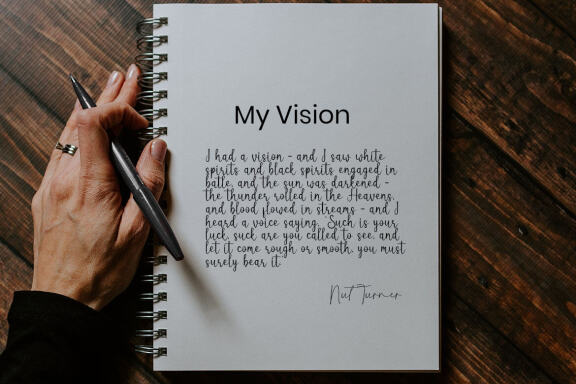 My Vision
I had a vision - and I saw white
spirits and black spirits engaged in
batle, and the sun was darkened -
the thunder rolled in the Heavens,
and blood flowed in streams - and I
heard a voice saying, 'Such is your
luck, suck are you called to see, and
let it come rough or smooth, you must
surely bear it.'
Nut Turner